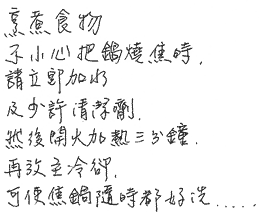 烹煮食物
不小心把鍋燒焦時,
請立即加水
及少許清潔劑.
然後開火加熱三分鐘.
再放至冷卻,
可使焦鍋隨時都好洗.....